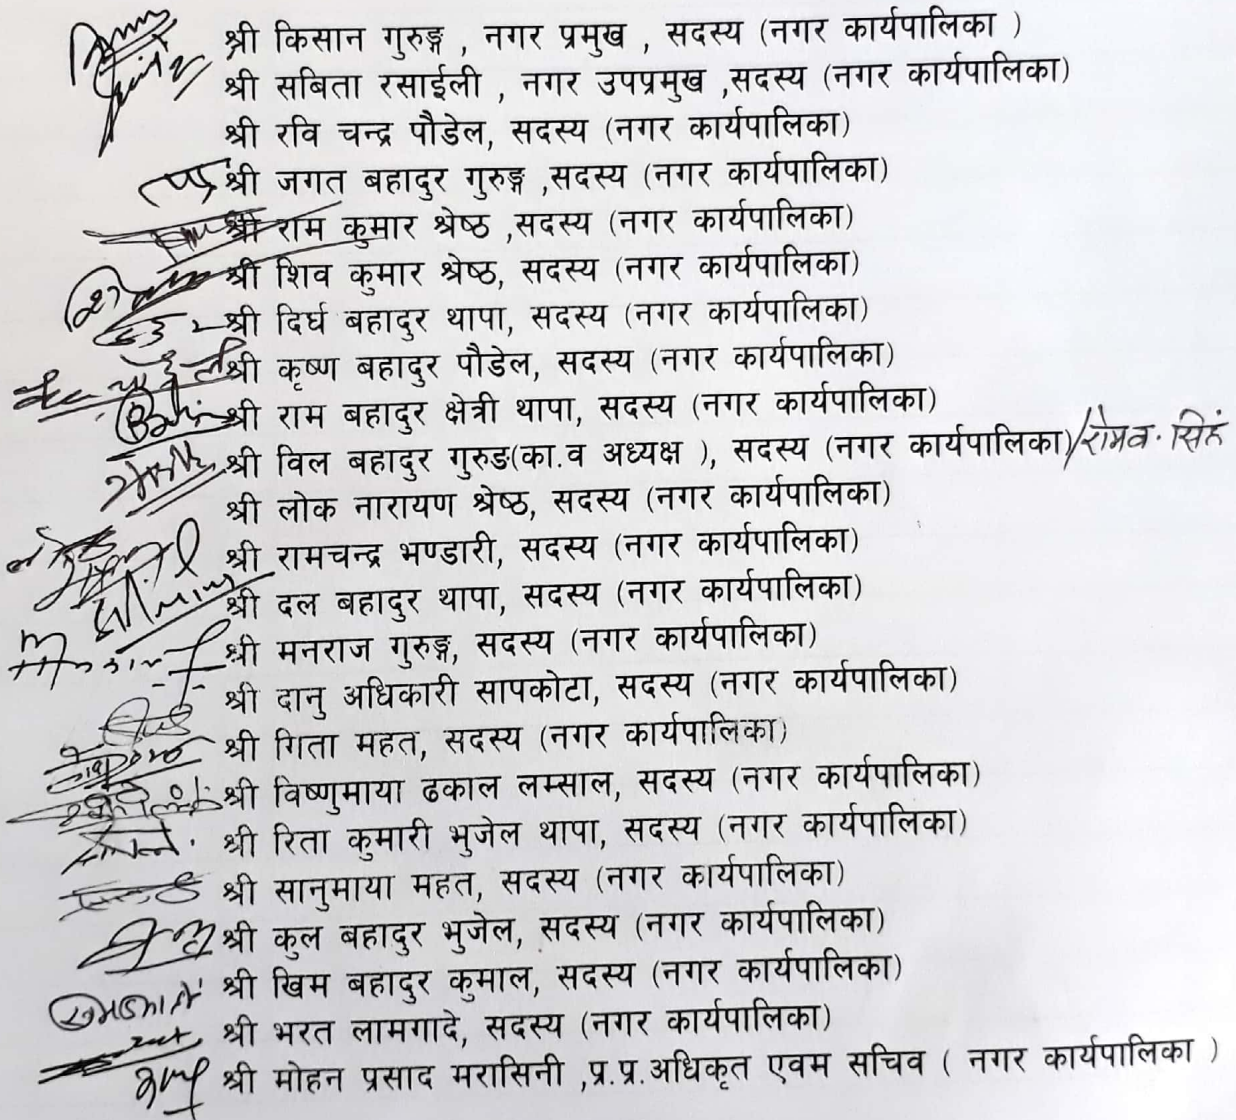 श्री किसान गुरुङ्ग , नगर प्रमुख , सदस्य (नगर कार्यपालिका )
श्री सबिता रसाईली , नगर उपप्रमुख ,सदस्य (नगर कार्यपालिका)
श्री रवि चन्द्र पौडेल, सदस्य (नगर कार्यपालिका)
श्री जगत बहादुर गुरुङ्ग ,सदस्य (नगर कार्यपालिका)
श्री राम कुमार श्रेष्ठ ,सदस्य (नगर कार्यपालिका)
श्री शिव कुमार श्रेष्ठ, सदस्य (नगर कार्यपालिका)
श्री दिर्घ बहादुर थापा, सदस्य (नगर कार्यपालिका)
श्री कृष्ण बहादुर पौडेल, सदस्य (नगर कार्यपालिका)
श्री राम बहादुर क्षेत्री थापा, सदस्य (नगर कार्यपालिका)
श्री विल बहादुर गुरुङ(का.व अध्यक्ष ), सदस्य (नगर कार्यपालिका)
श्री लोक नारायण श्रेष्ठ, सदस्य (नगर कार्यपालिका)
श्री रामचन्द्र भण्डारी, सदस्य (नगर कार्यपालिका)
श्री दल बहादुर थापा, सदस्य (नगर कार्यपालिका)
श्री मनराज गुरुङ्ग, सदस्य (नगर कार्यपालिका)
श्री दानु अधिकारी सापकोटा, सदस्य (नगर कार्यपालिका)
श्री गिता महत, सदस्य (नगर कार्यपालिका)
श्री विष्णुमाया ढकाल लम्साल, सदस्य (नगर कार्यपालिका)
श्री रिता कुमारी भुजेल थापा, सदस्य (नगर कार्यपालिका)
श्री सानुमाया महत, सदस्य (नगर कार्यपालिका)
श्री कुल बहादुर भुजेल, सदस्य (नगर कार्यपालिका)
श्री खिम बहादुर कुमाल, सदस्य (नगर कार्यपालिका)
श्री भरत लामगादे, सदस्य (नगर कार्यपालिका)
श्री मोहन प्रसाद मरासिनी ,प्र.प्र.अधिकृत एवम सचिव ( नगर कार्यपालिका )